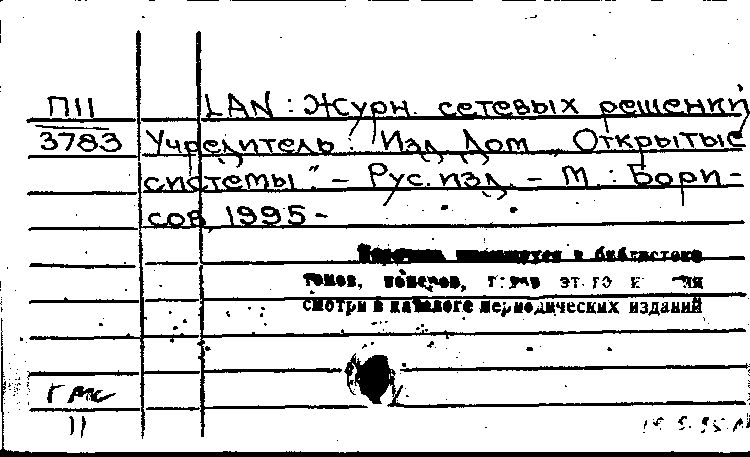 П11 LAN : Журн. сетевых решений /
3783 Учредитель : Изд. Дом „Открытые
системы". – Рус. изд. – М. : Бори-
сов, 1995 –
имеющихся в библиотеке
томов, номеров, этого
смотри в каталоге периодических изданий
11